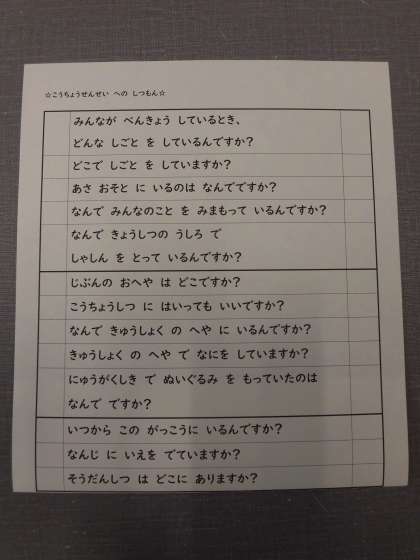 ☆こうちょうせんせい への しつもん☆
みんなが べんきょう しているとき、
どんな しごと を しているんですか?
どこで しごと を していますか?
あさ おそと に いるのは なんでですか?
なんで みんなのこと を みまもって いるんですか?
なんで きょうしつの うしろ で
しゃしん を とって いるんですか?
じぶんの おへや は どこですか?
こうちょうしつ に はいっても いいですか?
なんで きゅうしょく の へや に いるんですか?
きゅうしょく の へや で なにを していますか?
にゅうがくしき で ぬいぐるみ を もっていたのは
なんで ですか?
いつから この がっこうに いるんですか?
なんじ に いえを でていますか?
そうだんしつ は どこに ありますか?